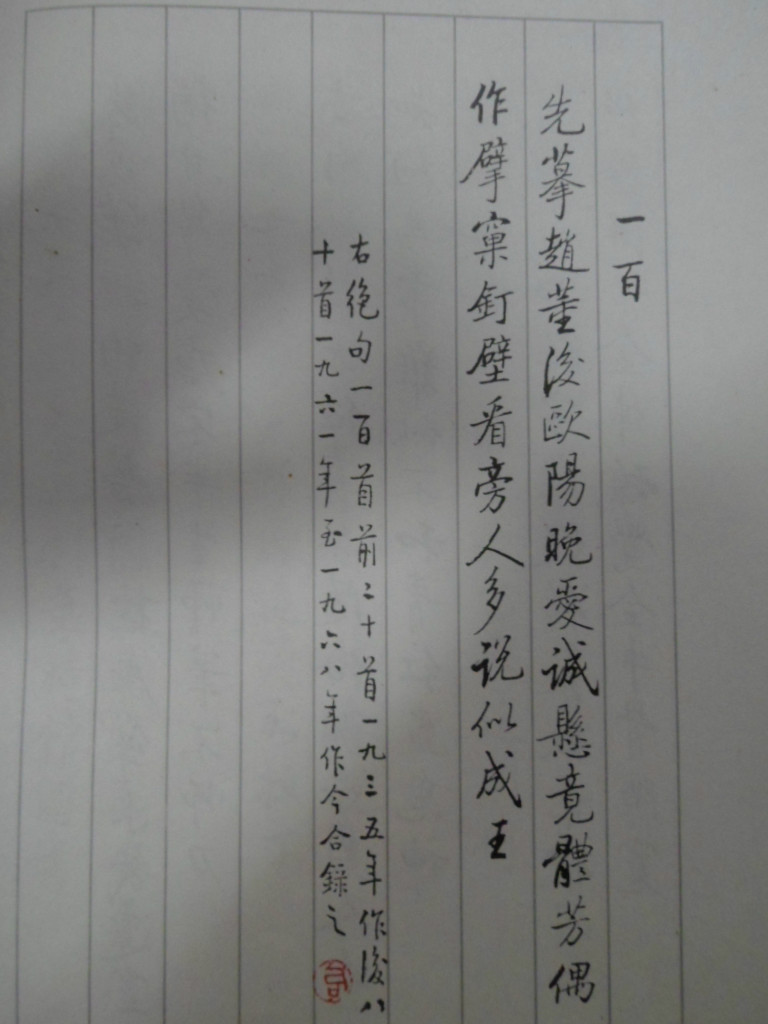 一百
先摹趙董後歐陽晚愛誠懸竟體芳偶
作擘窠釘壁看旁人多说似成王
右绝句一百首前二十首一九三五年作後八
十首一九六一年至一九六八年作今合録之